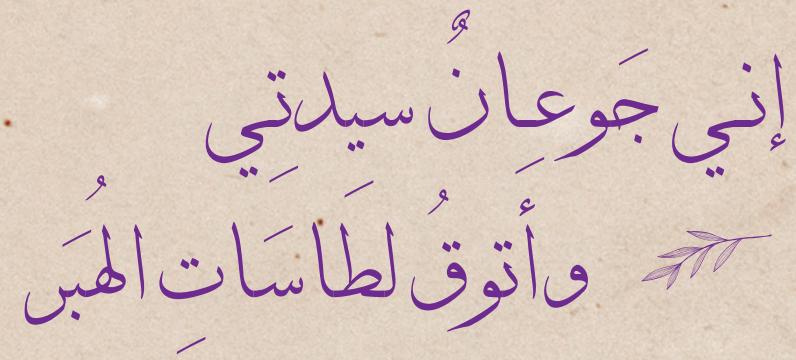 إنني جَوعِانٌ سيدتِي
وأتوقُ لطَاسَاتِ الهُبَر